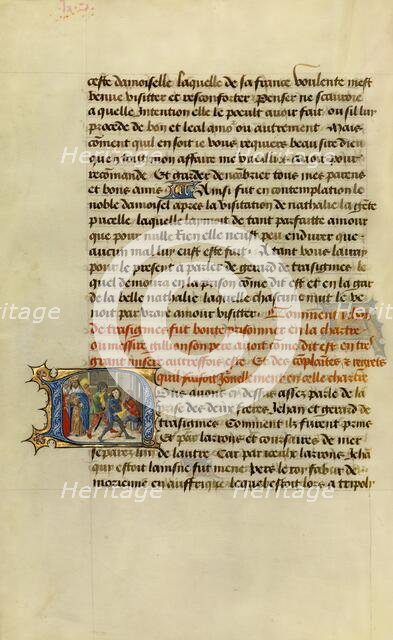 ceste damoiselle laquelle de sa france voulente mest
venue visitter et resconforter Penser ne scauroie
a quelle intention elle le poeult auoir fait ou sil luy
procede de bon et leal amour ou autrement Mais
coment quil en soit ie vous requiers beau sire dieu
que tout mon affaire me vueilliez auoir pour
recomande Et garder de nobrier tous mes parens
et bons amis Ainsi fut en contemplation le
noble damoisel apres la visitation de nathalie la gete
pucelle laquelle laymoit de tant parfaitte amour
que pour nulle rien elle neust peu endurer que
aucun mal luy eust este fait A tant vous lairay
pour le present a parler de gerard de trasignies le
quel demoura en la prison come dit est et en la gar
de la belle nathalie laquelle chascune nuit le ve
noit par vraye amour visitter Comment
de trasignies fut boute prisonnier en la chartre
ou messire gillion son pere auoit come dit est en tres
grant misere autresfois este Et des complaintes et regretz
quil faisoit Jonellement en celle chartre
Ous auons cy dessus assez parle de la
prise des deux freres Jehan et gerard de
trasignies Comment ilz furent prins
Et par larrons et coursaires de mer
separez lun de lautre Car par iceulx larrons Jeha
qui estoit laisne fut mene vers le roy fabur de
morienne en auffrique lequel estoit lors a tripoly
Heritage
Heritage
Heritage
Heritage
Heritage
Heritage